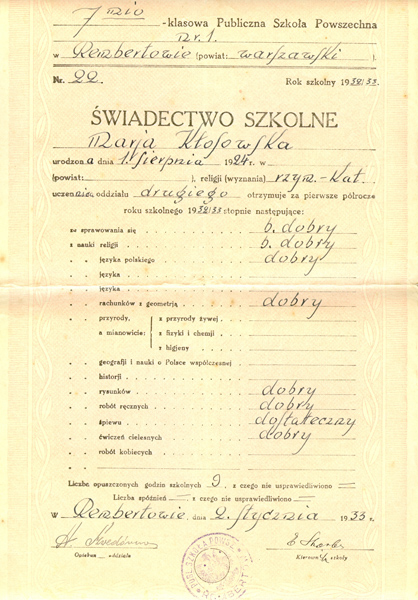 7 mio -klasowa Publiczna Szkoła Powszechna
Nr. 1.
w Rembertowie (powiat: warszawski)
Nr. 22 Rok szkolny 1932/33
ŚWIADECTWO SZKOLNE
Marja Kłosowska
urodzona dnia 1. sierpnia 1924 r. w
(powiat: ), religii (wyznania) rzym.-kat.
uczennica oddziału drugiego otrzymuje za pierwsze półrocze
roku szkolnego 1932/33 stopnie następujące:
ze sprawowania się b. dobry
z nauki religji b. dobry
" " języka polskiego dobry
" " języka
" " języka
" " rachunków z geometrją dobry
" " przyrody, z przyrody żywej
a mianowicie: z fizyki i chemji
z higjeny
" " geografji i nauki o Polsce współczesnej
" " historji
" " rysunków dobry
" " robót ręcznych dobry
" " śpiewu dostateczny
" " ćwiczeń cielesnych dobry
" " robót kobiecych
Liczba opuszczonych godzin szkolnych 9, z czego nie usprawiedliwiono =
Liczba spóźnień =, z czego nie usprawiedliwiono =
W Rembertowie, dnia 2. stycznia 1933 r.
Opiekun oddziału Kierownik szkoły